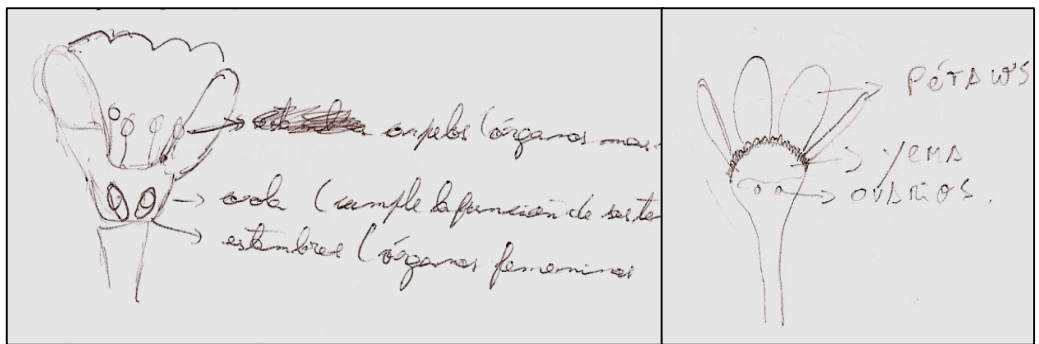 carpelos (órganos mas
(cumple la función de soste
estambres (órganos femeninos
PÉTALOS
YEMA
OVARIOS.